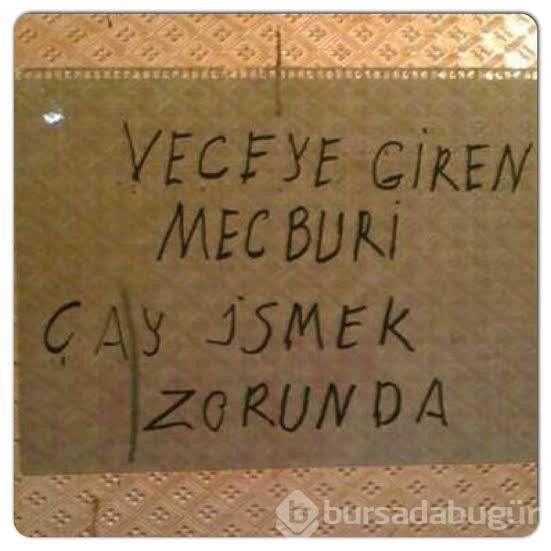 VEÇEYE GİREN
MECBURİ
ÇAY İSMEK
ZORUNDA
b bursadabugün